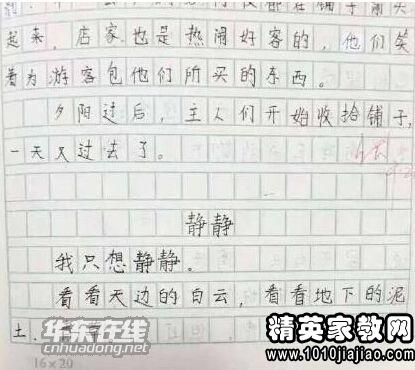 们 铺子
起来，店家也是热闹好客的，他们笑
着为游客包他们所买的东西。
夕阳过后，主人们开始收拾铺子，
一天又过去了。
静静
我只想静静。
看看天边的白云，看看地下的泥
土，
华东在线
cnhuadong.net
精英家教网
www.1010jiajiao.com
16×20